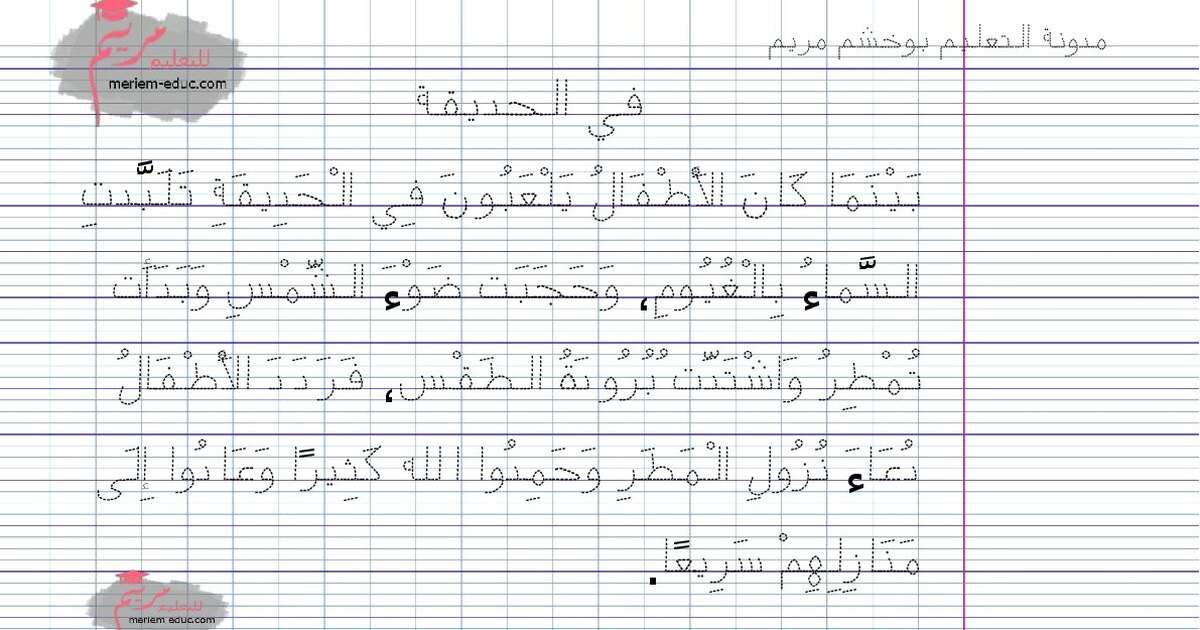 مدونة التعليم بوخشم مريم
مريم
للتعليم
meriem-educ.com
في الحديقة
بَيْنَمَا كَانَ الأَطْفَالُ يَلْعَبُونَ فِي الْحَدِيقَةِ تَلَبَّدتِ
السَّمَاءُ بِالْغُيُومِ، وَحَجَبَت ضَوْءَ الشَّمْسِ وَبَدَأَت
تُمْطِرُ وَاشْتَدَّت بُرُودَةُ الطَقْس، فَرَدَدَ الأَطْفَالُ
دُعَاءَ نُزُولِ الْمَطَرِ وَحَمِدُوا الله كَثِيرًا وَعَادُوا إِلَى
مَنَازِلِهِمْ سَرِيعًا.
مريم
للتعليم
meriem educ.com